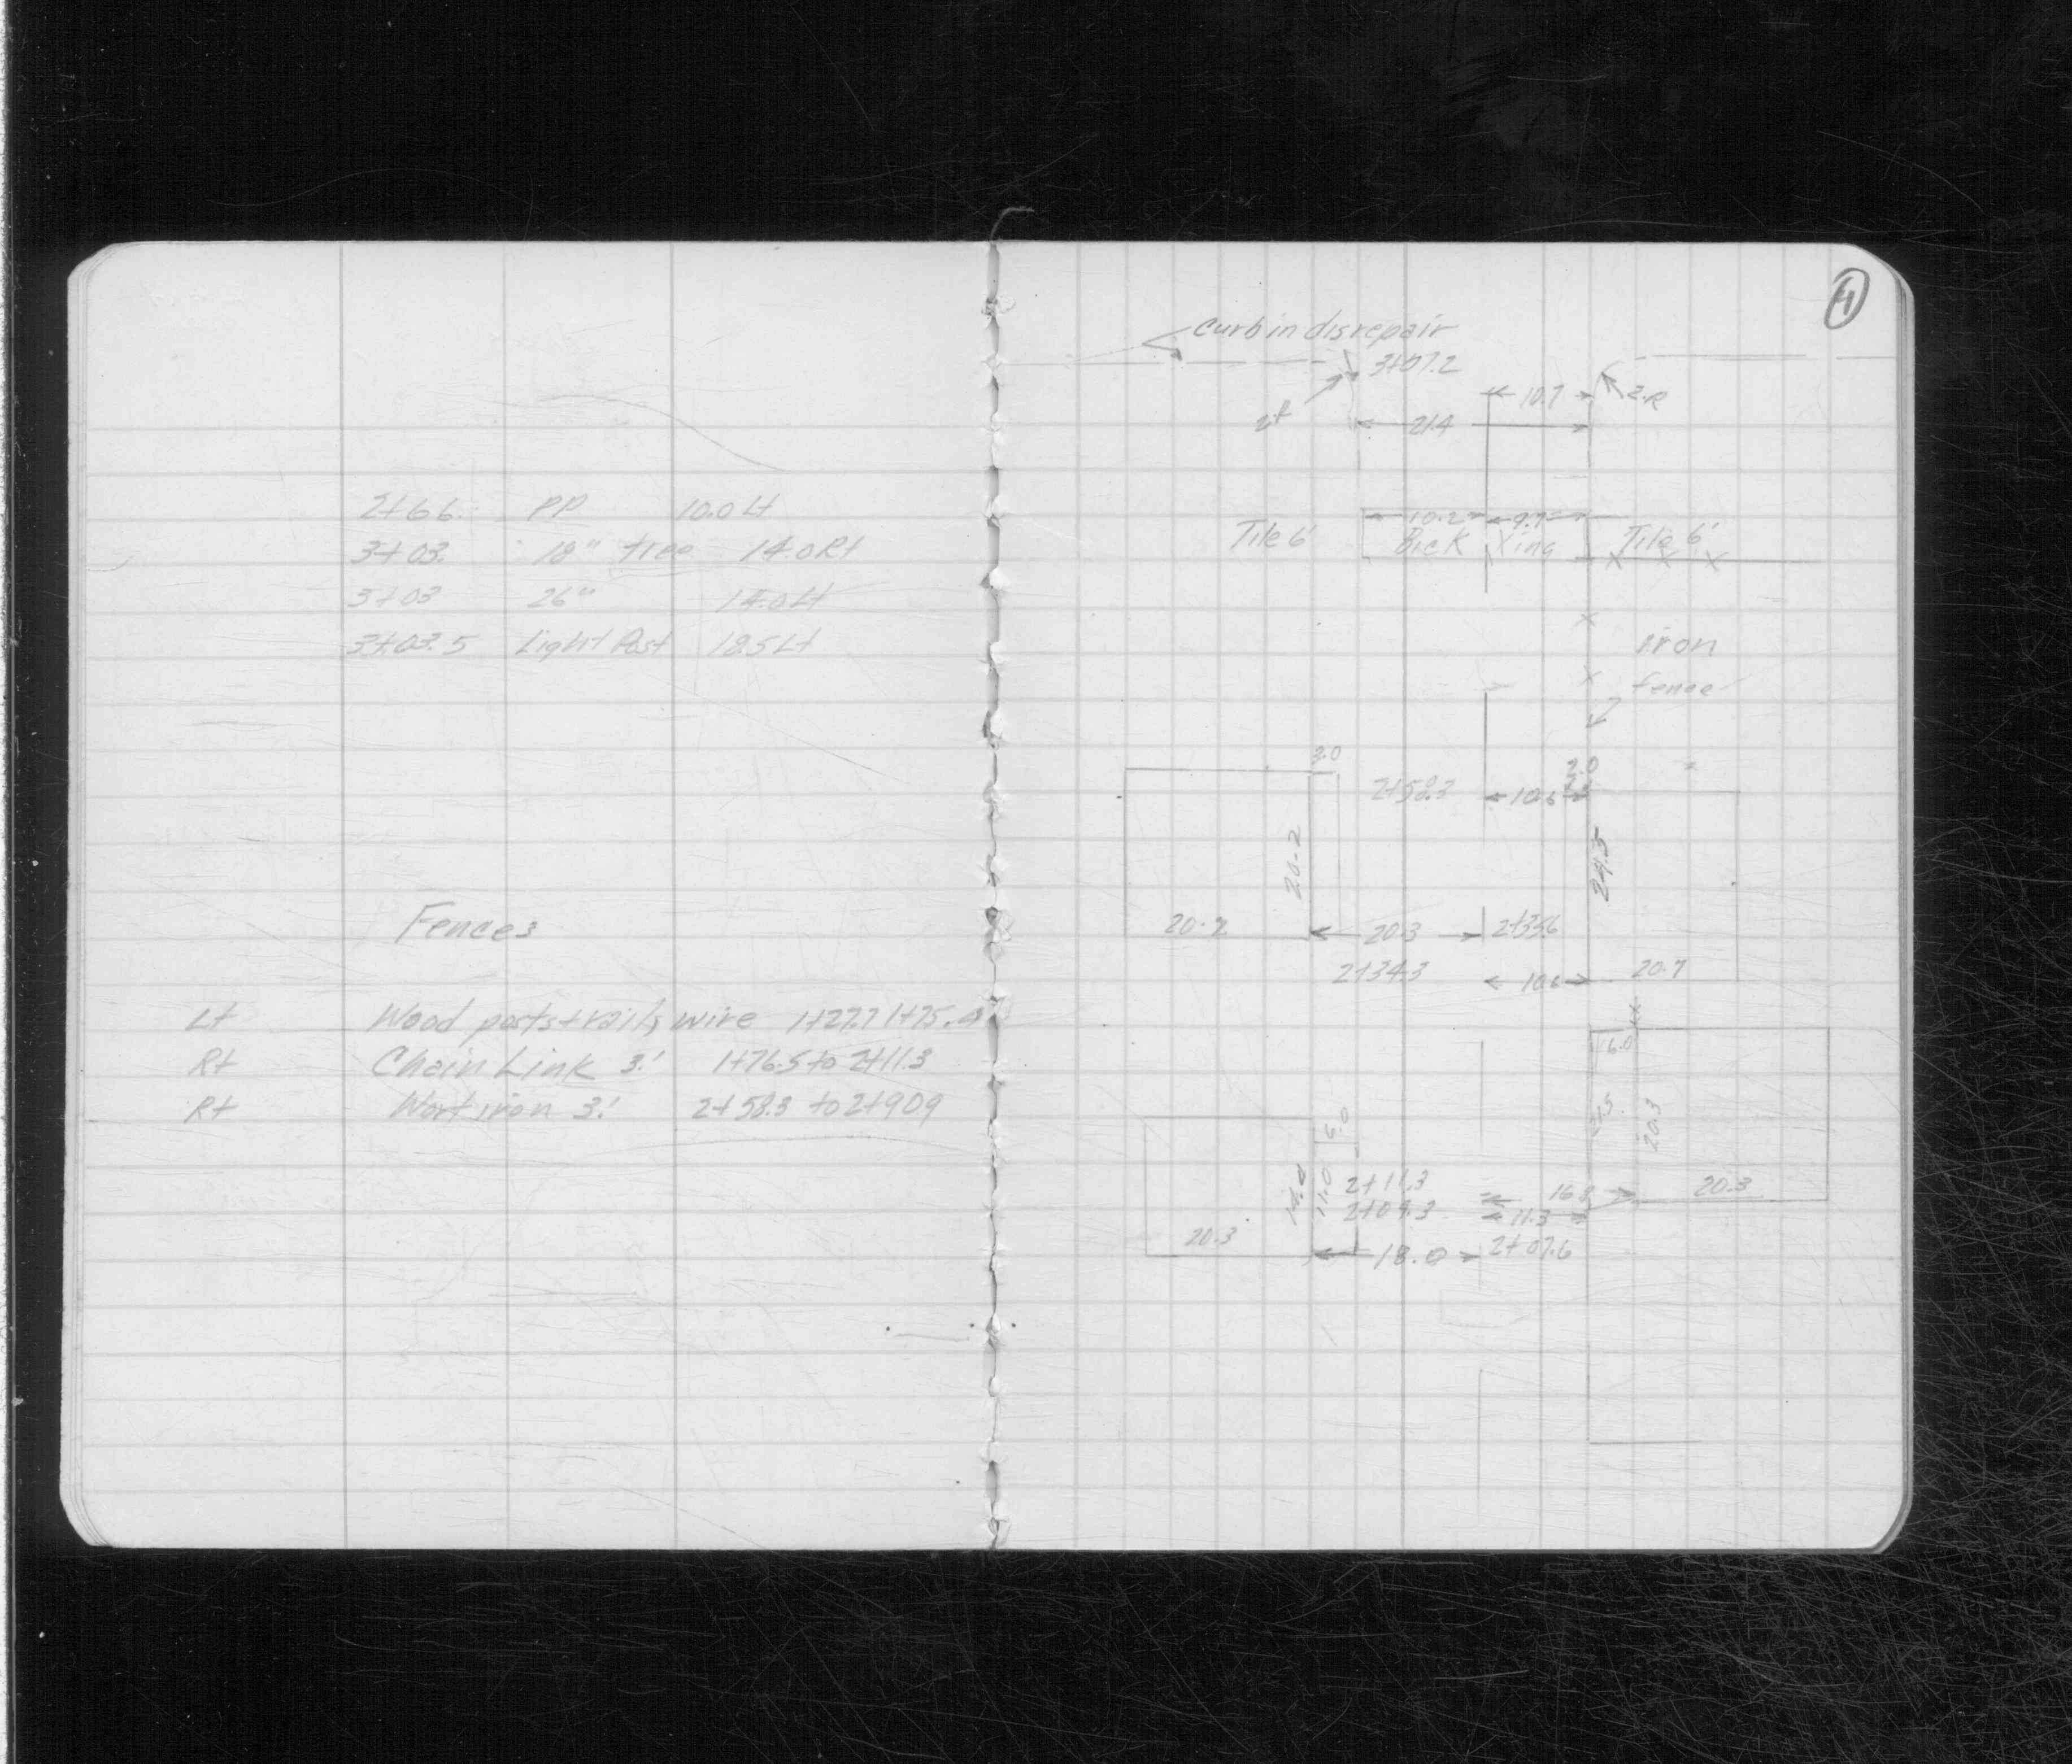 2+66. PP 10.0 Lt
3+03. 18" tree 14.0 Rt
3+03 26" 14.0 Lt
3+03.5 Light Post 18.5 Lt
Fences
Lt Wood posts + rails, wire 1+27.7 1+75.4
Rt Chain Link 3.' 1+76.5 to 2+11.3
Rt Wort iron 3.' 2+58.3 to 2+90.9
4
curb in disrepair
3+07.2
10.7 2.R
21.4
10.2 9.7
Tile 6' Bick Xing Tile 6'
iron
fence
3.0 2.0
2+58.3 10.6
20.2 24.5
20.2 20.3 2+33.6
2+34.3 10.6 20.7
6.0
6.0 20.3
14.0 11.0 2+11.3 16.8 20.3
2+09.3 11.3
20.3 18.0 2+07.6